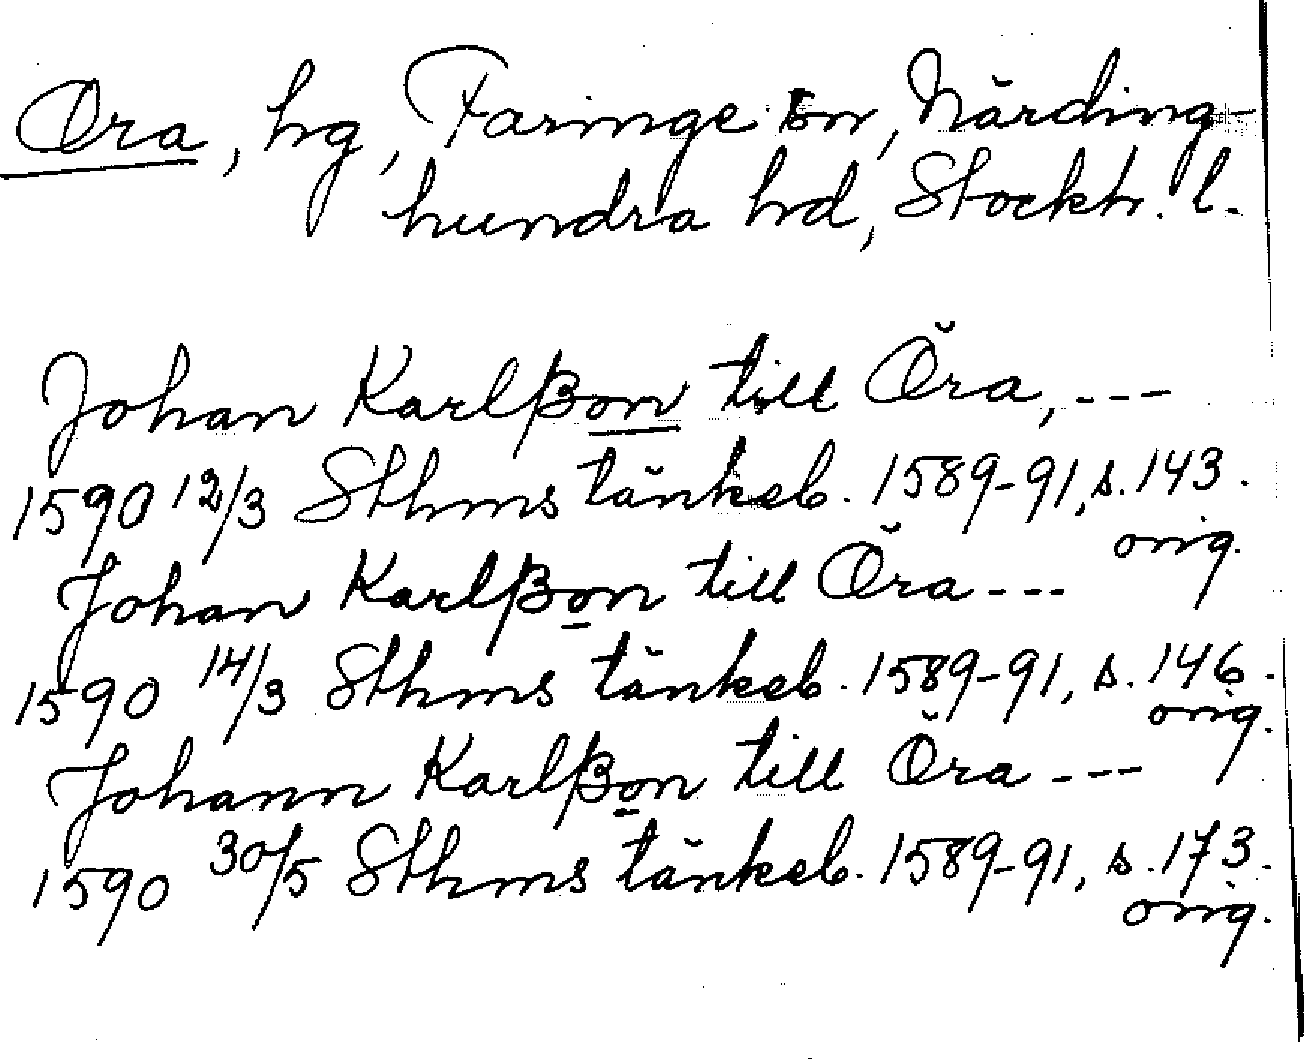 Ora, hg, Faringe sn, Närding-
hundra hd, Stockh. l.
Johan Karlßon till Öra, ---
1590 12/3 Sthms tänkeb. 1589-91, s. 143.
orig.
Johan Karlßon till Öra ---
1590 14/3 Sthms tänkeb. 1589-91, s. 146.
orig.
Johann Karlßon till Öra ---
1590 30/5 Sthms tänkeb. 1589-91, s. 173.
orig.